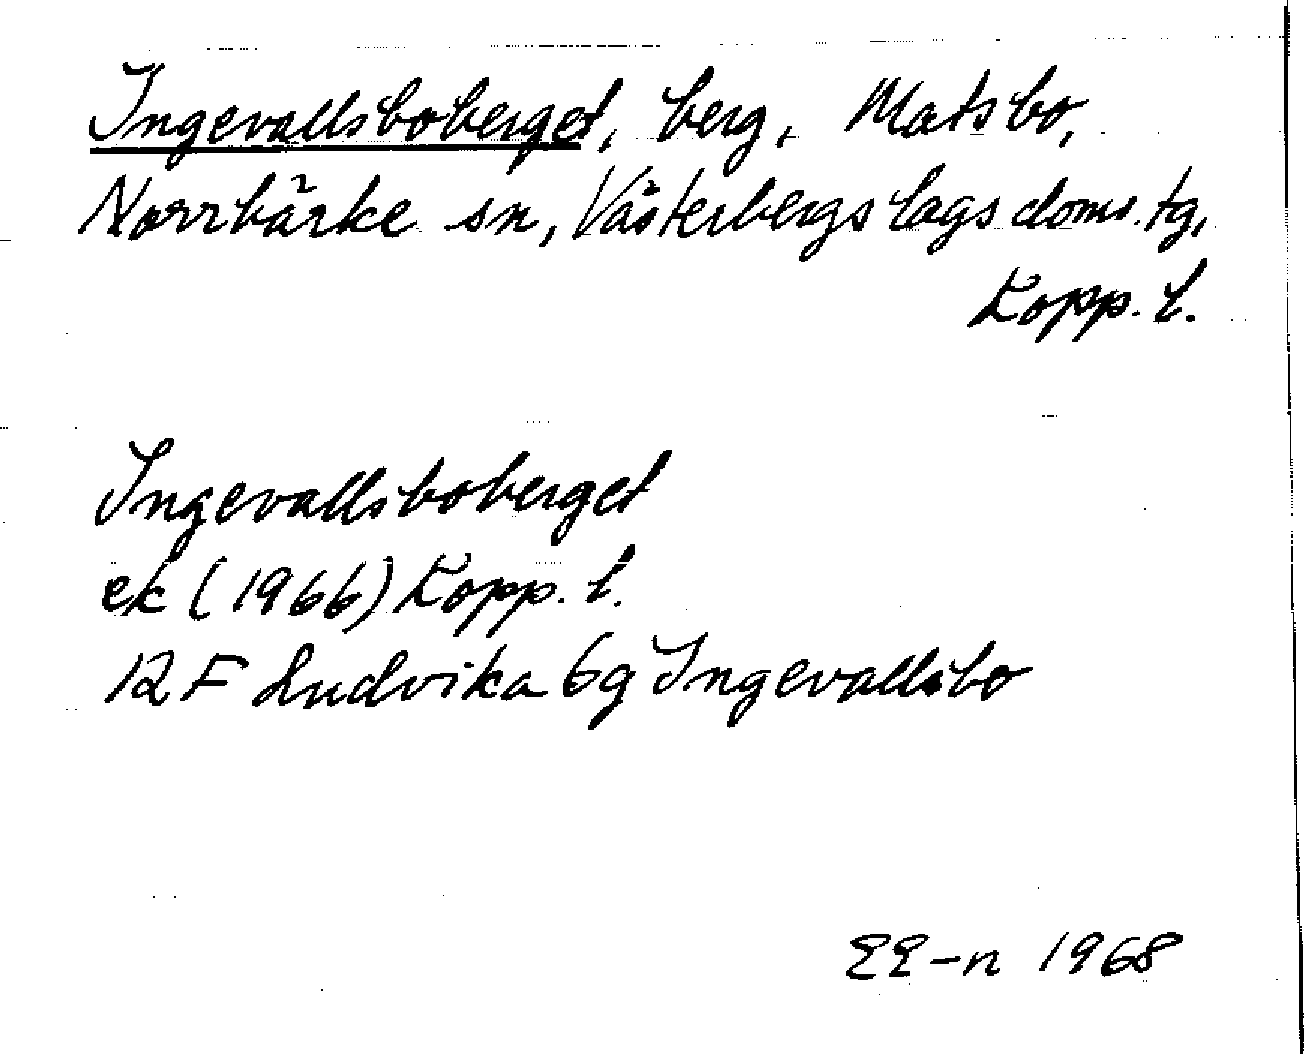 Ingevallsboberget, berg, Matsbo,
Norrbärke sn, Västerbergslags doms. tg,
Kopp. l.
Ingevallsboberget
ek (1966) Kopp. l.
12 F Ludvika 6g Ingevallsbo
EE-n 1968